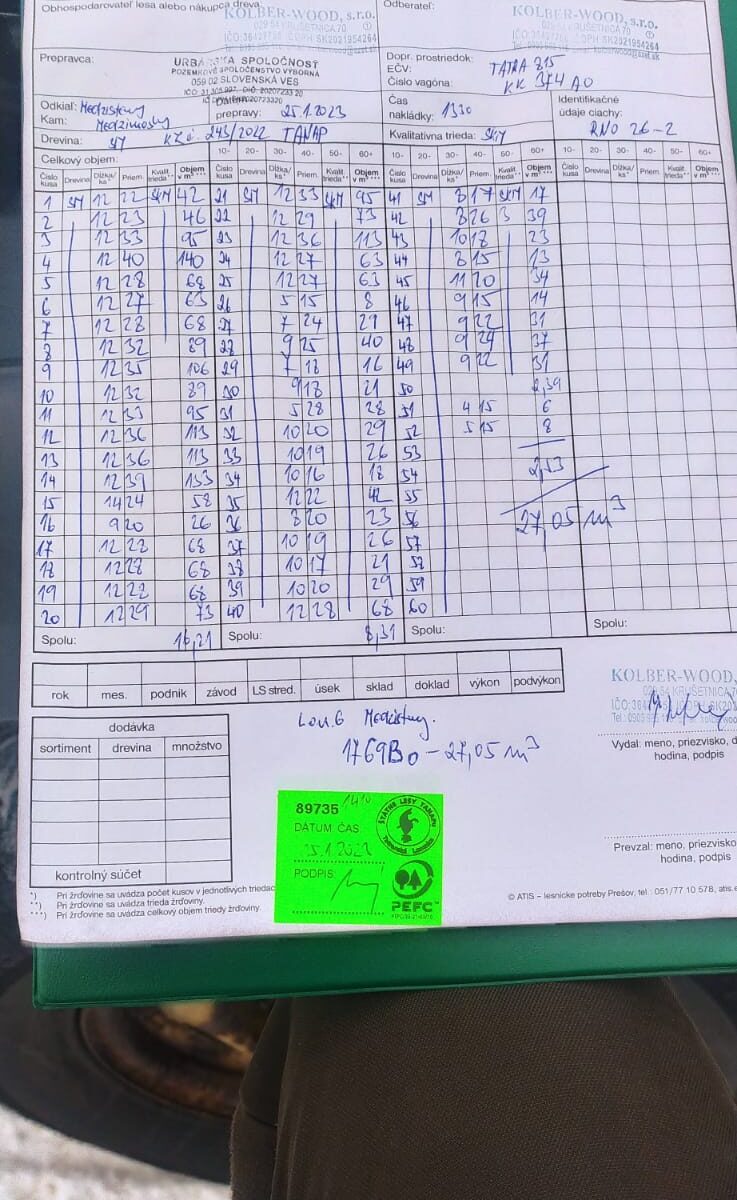 Obhospodarovateľ lesa alebo nákupca dreva:
KOLBER-WOOD, s.r.o.
029 54 KRUŠETNICA 70
Odberateľ:
KOLBER-WOOD, s.r.o.
029 54 KRUŠETNICA 70
Prepravca:
URBÁRSKA SPOLOČNOSŤ
POZEMKOVÉ SPOLOČENSTVO VÝBORNÁ
059 02 SLOVENSKÁ VES
Dopr. prostriedok: TATRA 815
EČV: KK 374 AO
Číslo vagóna:
Odkiaľ: Medzisteny
Kam:
Dátum prepravy: 25.1.2023
Čas nakládky: 1330
Identifikačné údaje ciachy: RNO 26-2
Drevina: SM 243/2022 TANAP
Kvalitatívna trieda: SKM
Celkový objem: 10- 20- 30- 40- 50- 60+ 10- 20- 30- 40- 50- 60+ 10- 20- 30- 40- 50- 60+
Číslo kusa Drevina Dĺžka/ ks* Priem. Kvalit. trieda** Objem v m³ ***
1 SM 12 22 SKM 42 21 SM 12 33 SKM 95 41 SM 8 17 SKM 17
2 12 23 46 22 12 29 73 42 8 26 3 39
3 12 33 95 23 12 36 113 43 10 18 23
4 12 40 140 24 12 27 63 44 8 15 13
5 12 28 68 25 12 27 63 45 11 20 34
6 12 27 63 26 5 15 8 46 9 15 14
7 12 28 68 27 7 24 29 47 9 22 31
8 12 32 89 28 9 25 40 48 9 24 37
9 12 35 106 29 7 18 16 49 9 22 31
10 12 32 89 30 9 18 21 50 2,39
11 12 33 95 31 5 28 28 51 4 15 6
12 12 36 113 32 10 20 29 52 5 15 8
13 12 36 113 33 10 19 26 53
14 12 39 133 34 10 16 18 54 2,53
15 14 24 58 35 12 22 42 55
16 9 20 26 36 8 20 23 56 27,05 m³
17 12 28 68 37 10 19 26 57
18 12 28 68 38 10 17 21 58
19 12 28 68 39 10 20 29 59
20 12 29 73 40 12 28 68 60
Spolu: 16,21 Spolu: 8,31 Spolu: Spolu:
rok mes. podnik závod LS stred. úsek sklad doklad výkon podvýkon
KOLBER-WOOD,
029 54 KRUŠETNICA 70
dodávka
sortiment drevina množstvo
kontrolný súčet
Lou.6 Medzisteny.
1769Bo - 27,05 m³
Vydal: meno, priezvisko, d
hodina, podpis
89735 1410
DÁTUM ČAS
25.1.2023
PODPIS
ŠTÁTNE LESY TANAPU
Tatranská Lomnica
PEFC™
Prevzal: meno, priezvisko
hodina, podpis
*) Pri žrďovine sa uvádza počet kusov v jednotlivých triedac
**) Pri žrďovine sa uvádza trieda žrďoviny.
***) Pri žrďovine sa uvádza celkový objem triedy žrďoviny.
© ATIS – lesnícke potreby Prešov, tel.: 051/77 10 578, atis.e